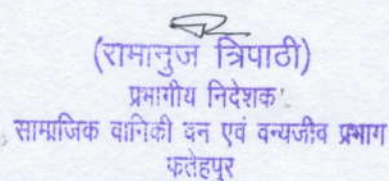 (रामानुज त्रिपाठी)
प्रभागीय निदेशक
सामाजिक वानिकी वन एवं वन्यजीव प्रभाग
फतेहपुर